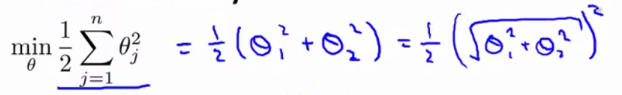 min_θ 1/2 ∑_{j=1}^{n} θ_j^2 = 1/2 (θ_1^2 + θ_2^2) = 1/2 (√(θ_1^2 + θ_2^2))^2